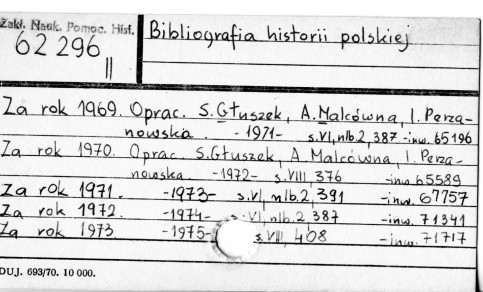 Zakł. Nauk. Pomoc. Hist.
62 296
II
Bibliografia historii polskiej
Za rok 1969. Oprac. S. Głuszek, A. Malcówna, I. Perza-
nowska. -1971- s. VI, nlb. 2, 387 -inw. 65196
Za rok 1970. Oprac. S. Głuszek, A. Malcówna, I. Perza-
nowska -1972- s. VIII, 376 -inw. 65589
Za rok 1971. -1973- s. VI, nlb. 2, 391 -inw. 67757
Za rok 1972. -1974- s. VI, nlb. 2 387 -inw. 71341
Za rok 1973 -1975- s. VIII, 408 -inw. 71717
DUJ. 693/70. 10 000.